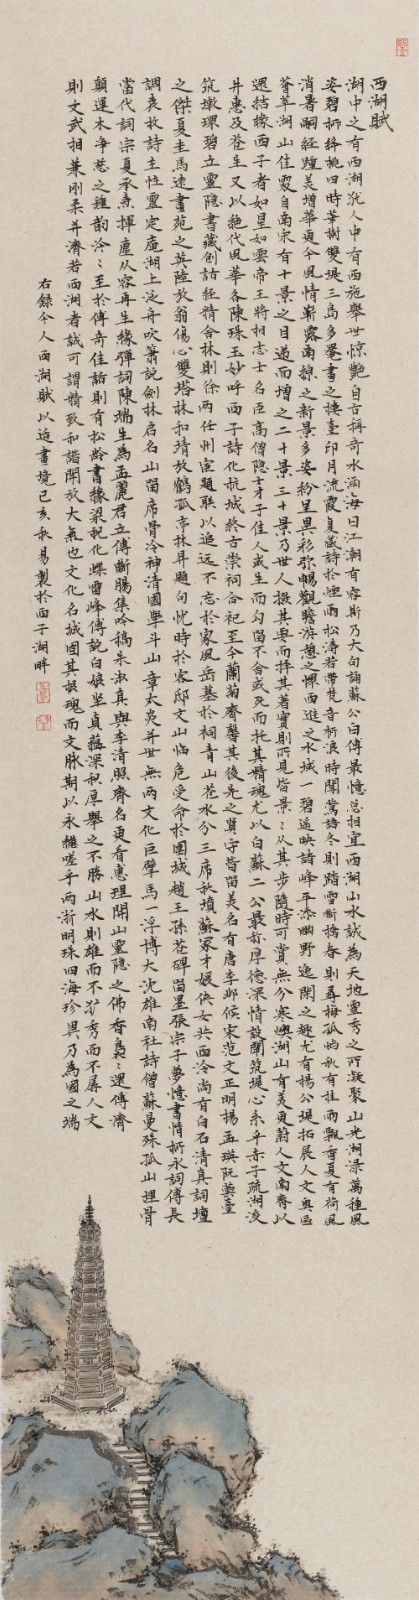 西湖賦
湖中之有西湖猶人中有西施舉世惊艷自古稱奇水涵海日江潮有容斯乃大句誦蘇公白傅最憶总相宜西湖山水誠為天地靈秀之所凝聚山光湖渌萬種風
姿碧桥绛桃四時華樹雙堤三島多臺書之樓臺印月流霞复藏詩於煙雨松濤若帶梵音桥浪時聞鶯語冬則踏雪斷橋春則尋梅孤屿秋有桂雨飄香夏有荷風
消暑嗣經踵美增華更令風情嶄露南線之新景多姿紛呈異彩弥暢觀瞻游憩之愜西進之水域一碧遥映諸峰平添幽野逸閑之趣尤有楊公堤拓展人文奥區
薈萃湖山佳處自南宋有十景之目遞而增之二十景三十景乃世人撮其要而抨其著實則所見皆景從其步隨時可賞無分寒燠湖山有美更蔚人文南齊以
還結緣西子者如星如雲帝王將相志士名臣高僧隐士才子佳人或生而勾留不舍或死而托其精魂尤以白蘇二公最彰厚德深情設閘筑堤心系乎赤子疏湖浚
井惠及蒼生又以絶代風華各陳珠玉妙呼西子詩化杭城終古崇祠合祀至今蘭菊齊馨其後先之賢守皆留美名有唐李邺侯宋范文正明楊孟瑛阮蕓臺
筑墩璟碧立靈隐書藏創詁經精舍林則徐兩任州宦題聯以追远不忘於家風岳墓於祠青山苍水分三席秋墳蘇冢才媛侠女共西泠尚有白石清真詞壇
之傑夏圭馬遠畫苑之英陸放翁傷心雙塔林和靖放鶴孤亭林昇題句忧時於客邸文山临危受命於圍城趙王孫苍碑留墨張宗子夢憶書情桥永詞傳長
調袁枚詩主性靈定庵湖上泛舟吹簫說劍林启名山留席骨冷神清國學斗山章太炎并世無兩文化巨擘馬一浮博大沈雄南社詩僧蘇曼殊孤山埋骨
當代詞宗夏承焘揮麈从容再生緣彈詞陳端生為孟麗君立傳斷腸集吟稿朱淑真與李清照齊名更看惠理開山靈隐之佛香裊裊還傳濟
顛運木净慈之鍾韵泠泠至於傳奇佳話則有松齡書掾梁祝化蝶雷峰傳說白娘坐貞蕴深积厚舉之不勝山水則雄而不犷秀而不孱人文
則文武相兼剛柔并濟若西湖者誠可謂精致和諧開放大氣也文化名城固其瑰瑰而文脉期以永繼嗟乎兩浙明珠四海珍異乃為國之瑞
右録今人西湖賦以造畫境己亥秋易製於西子湖畔